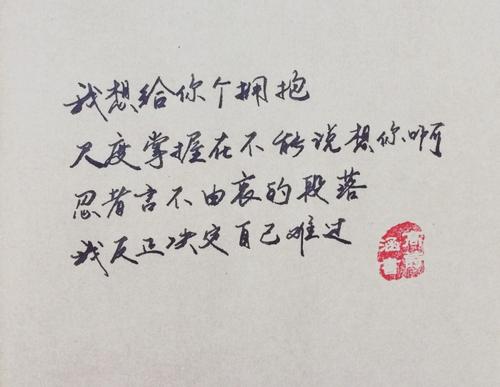 我想给你个拥抱
尺度掌握在不能说想你啊
忍着言不由衷的段落
我反正决定自己难过